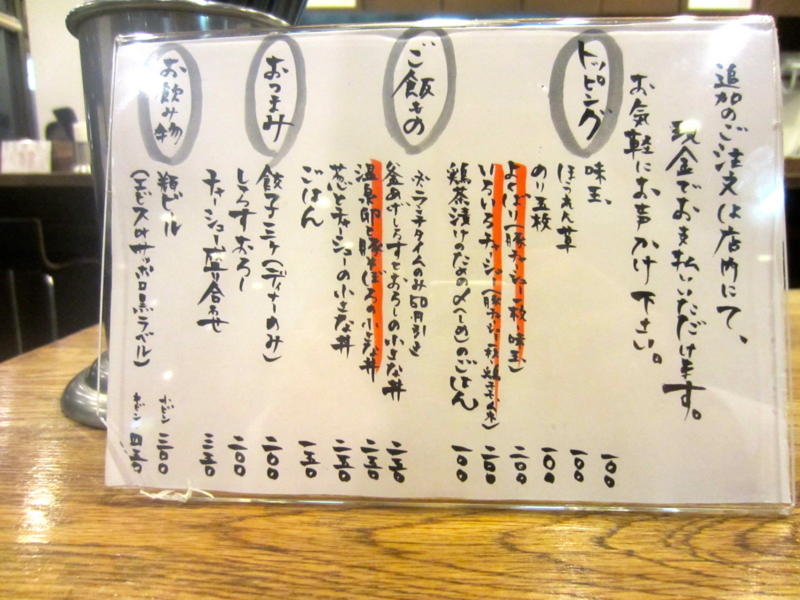 追加のご注文は店内にて、
現金でお支払いいただけます。
お気軽にお声かけ下さい。
トッピング
味玉 一〇〇
ほうれん草 一〇〇
のり五枚 一〇〇
よくばり(豚チャーシュー一枚・味玉) 二〇〇
いろいろチャーシュー 二〇〇
鶏茶漬けのための〆(しめ)のごはん 一〇〇
ご飯もの
※ランチタイムのみ50円引き
釜あげしらすとおろしの小さな丼 二五〇
温泉卵と豚そぼろの小さな丼 二五〇
葱とチャーシューの小さな丼 二五〇
ごはん 一五〇
おつまみ
餃子三ヶ(ディナーのみ) 二〇〇
しらすおろし 二〇〇
チャーシュー盛り合わせ 三五〇
お飲み物
瓶ビール
(エビスorサッポロ黒ラベル)